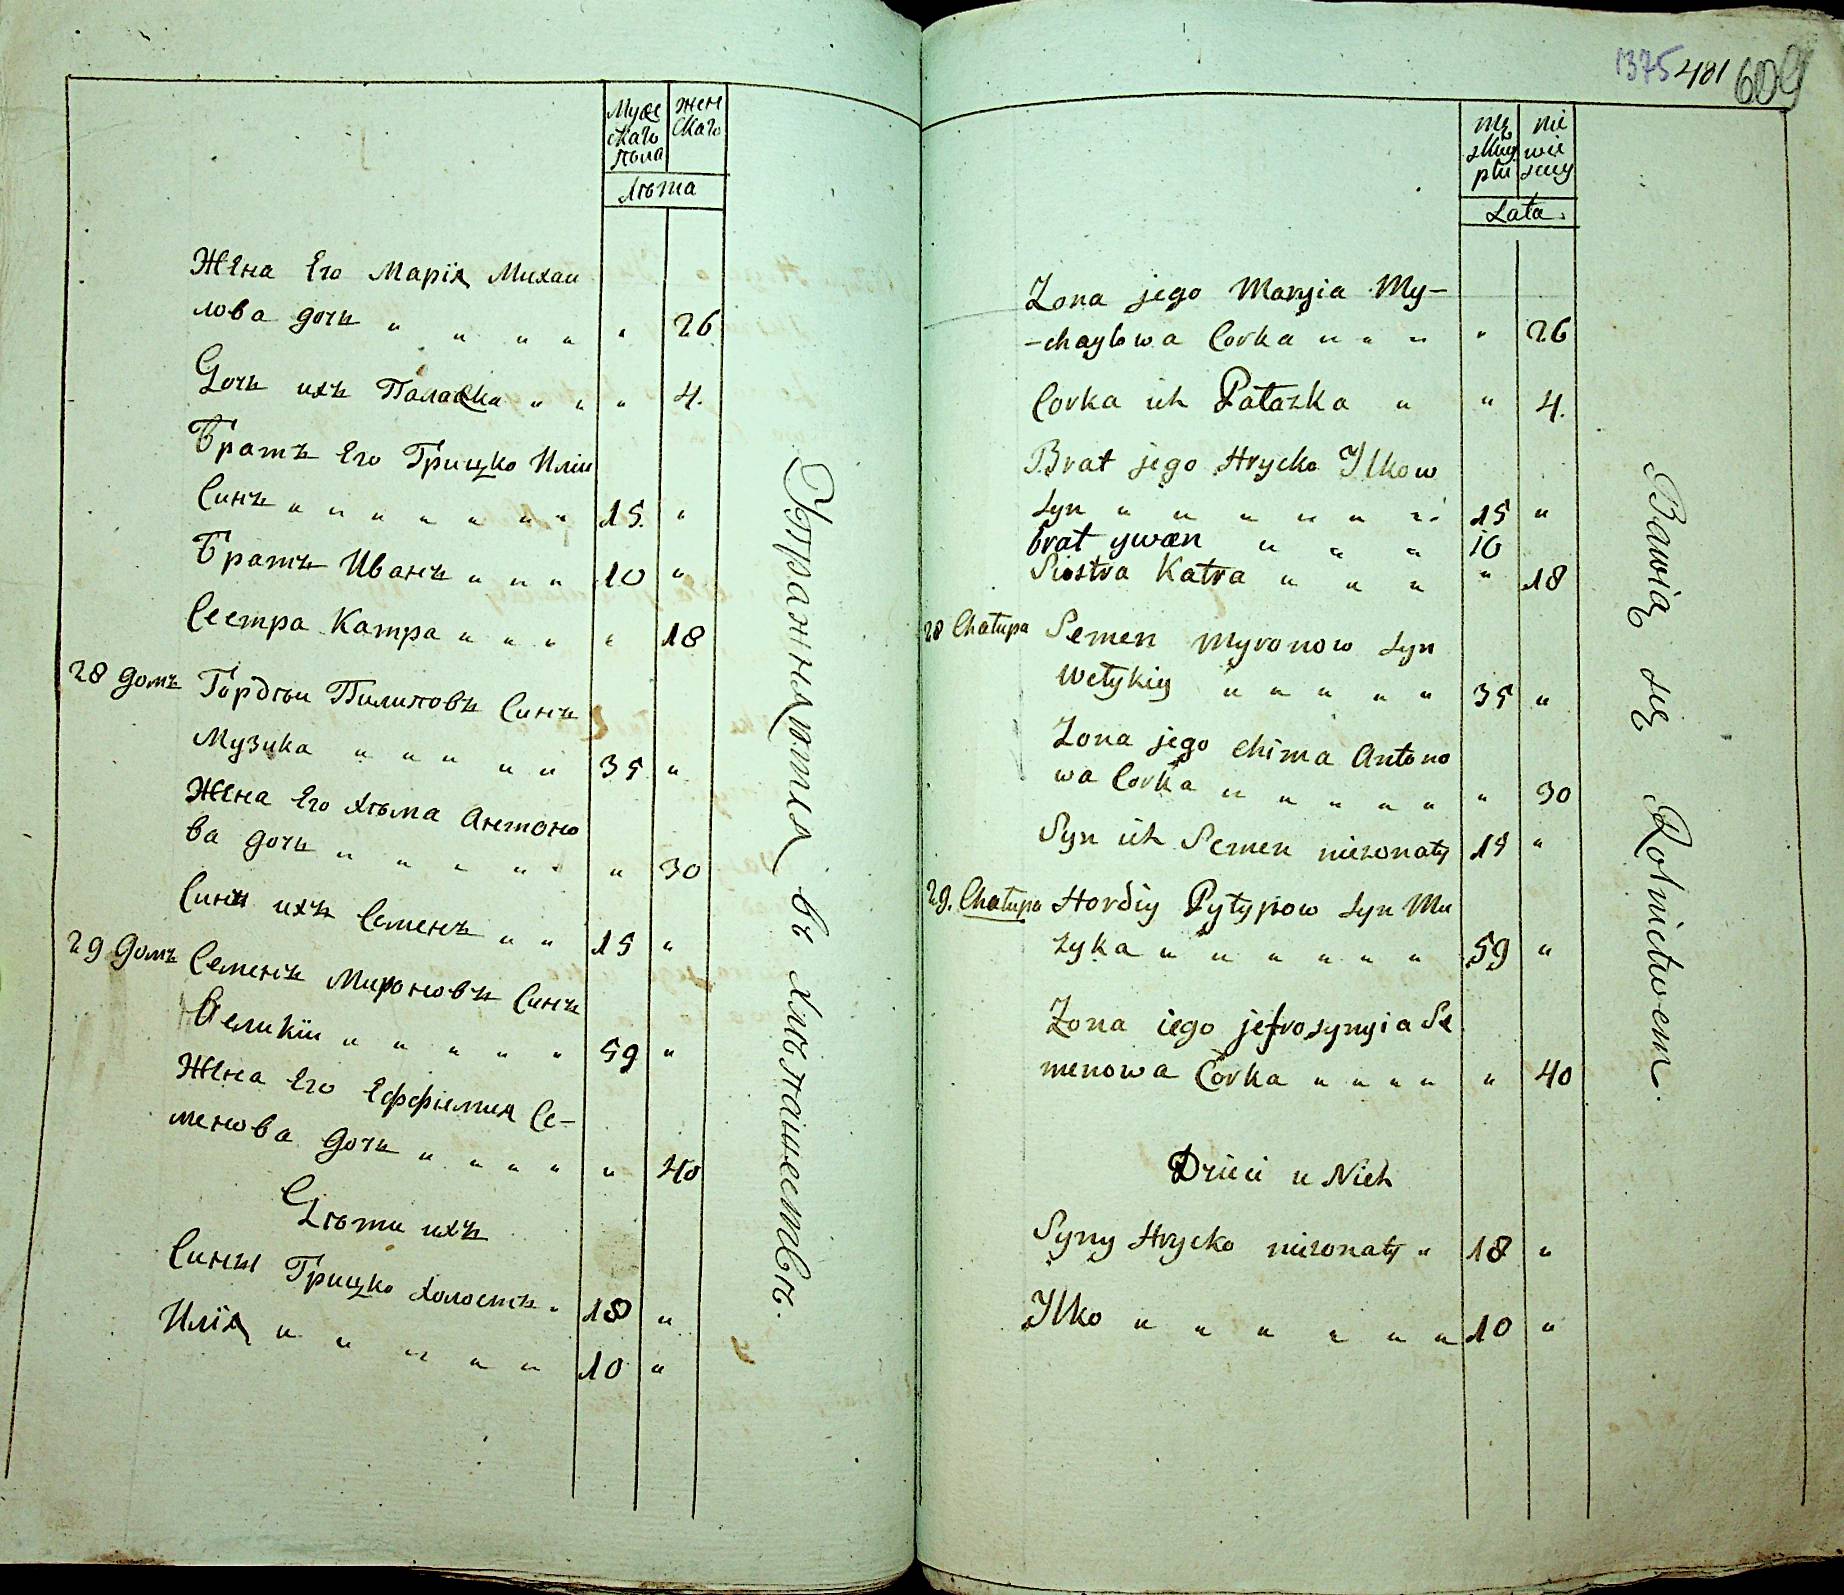 Муже
скаго
пола
жен
скаго
лѣта
Жена Его Марія Михаи
лова дочь " " " " " 26
Дочь ихъ Паласка " " " 4.
Братъ Его Грицко Иліи
Синъ " " " " " " " 15. "
Братъ Иванъ " " " 10 "
Сестра Катра " " " " 18
28 домъ Гордѣи Пилиповъ Синъ
Музика " " " " " 35 "
Жена Его Хѣма Антоно
ва дочь " " " " " " 30
Синъ ихъ Семенъ " " 15 "
29 домъ Семенъ Мироновъ Синъ
Великіи " " " " " 59 "
Жена Его Еффимия Се-
менова дочь " " " " " 40
Дѣти ихъ
Сины Грицко холостъ " 18 "
Илія " " " " " 10 "
Упражняются въ хлѣпашествѣ.
1375 481 609
mę
zkiey
płci
nie
wie
sciey
Lata.
Zona jego Maryia My-
-chayłowa Corka " " " " 26
Corka ich Pałazka " " 4.
Brat jego Hrycko Ilkow
syn " " " " " " 15 "
brat ywan " " " 10
Siostra Katra " " " " 18
28 Chałupa Semen Myronow syn
Wełykiy " " " " " 35 "
Zona jego Chima Antono
wa Corka " " " " " " 30
Syn ich Semen niezonaty 15 "
29. Chałupa Hordiy Pyłypow syn Mu
zyka " " " " " " 59 "
Zona iego jefrosynyia Se
menowa Corka " " " " " 40
Dzieci u Nich
Syny Hrycko niezonaty " 18 "
Ilko " " " " " " 10 "
Bawią się Rolnictwem.